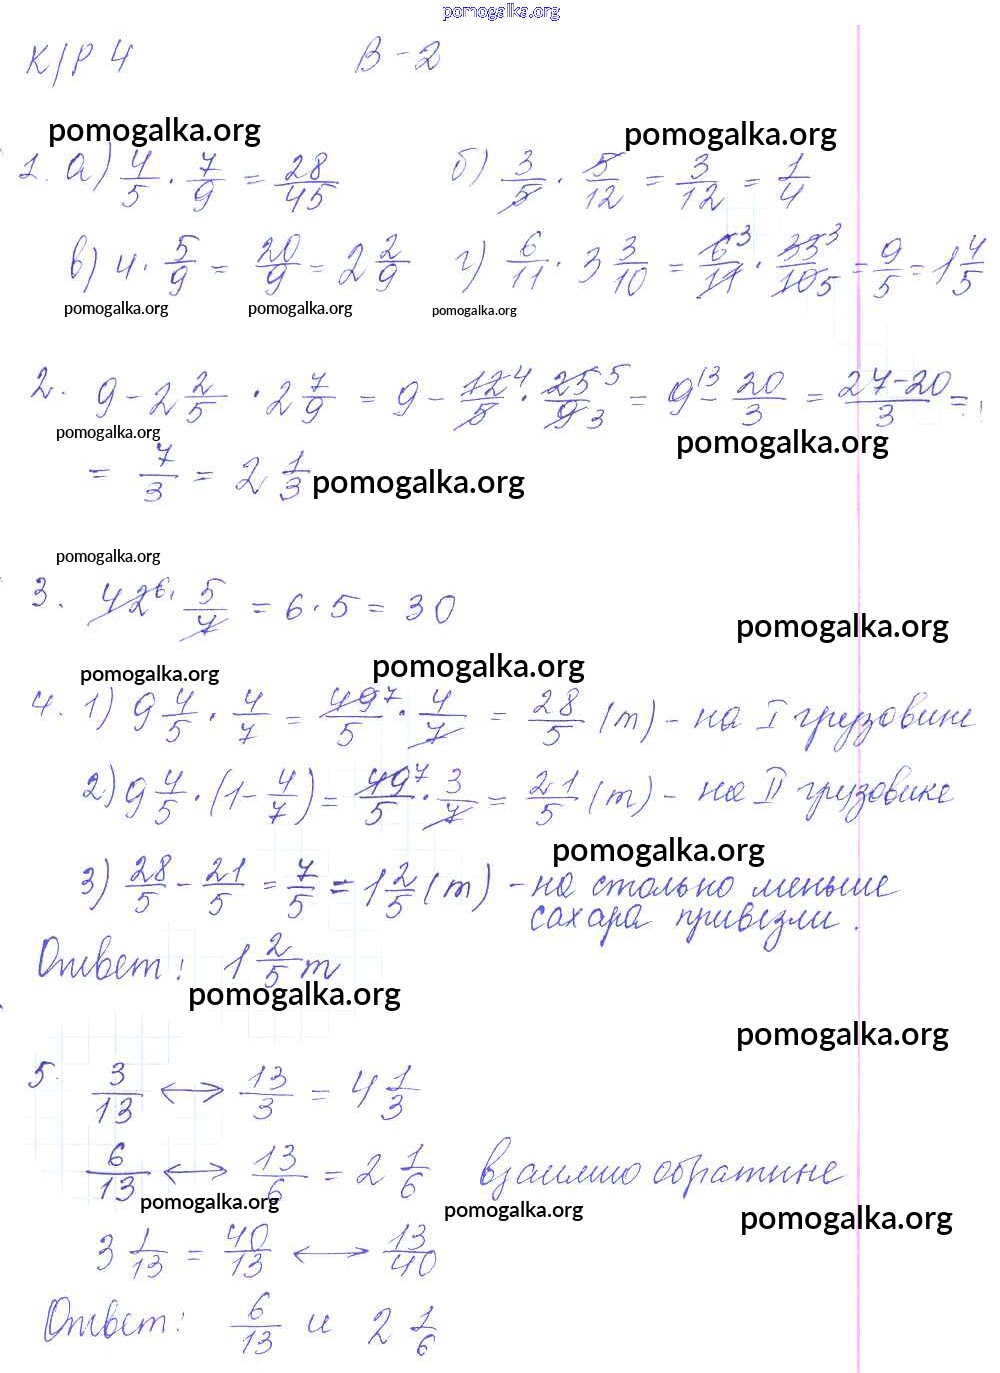 pomogalka.org
К/Р 4 В-2
pomogalka.org pomogalka.org
1. а) 4/5 · 7/9 = 28/45 б) 3/5 · 5/12 = 3/12 = 1/4
в) 4 · 5/9 = 20/9 = 2 2/9 г) 6/11 · 3 3/10 = 6 3/11 · 33 3/10 5 = 9/5 = 1 4/5
pomogalka.org pomogalka.org pomogalka.org
2. 9 - 2 2/5 · 2 7/9 = 9 - 12 4/5 · 25 5/9 3 = 9 13 - 20/3 = 27-20/3 =
pomogalka.org pomogalka.org
= 7/3 = 2 1/3 pomogalka.org
pomogalka.org
3. 42 6 · 5/7 = 6 · 5 = 30
pomogalka.org
pomogalka.org pomogalka.org
4. 1) 9 4/5 · 4/7 = 49 7/5 · 4/7 = 28/5 (т) - на I грузовике
2) 9 4/5 · (1 - 4/7) = 49 7/5 · 3/7 = 21/5 (т) - на II грузовике
pomogalka.org
3) 28/5 - 21/5 = 7/5 = 1 2/5 (т) - на столько меньше
сахара привезли.
Ответ: 1 2/5 т
pomogalka.org
pomogalka.org
5. 3/13 ↔ 13/3 = 4 1/3
6/13 ↔ 13/6 = 2 1/6 взаимно обратные
pomogalka.org pomogalka.org pomogalka.org
3 1/13 = 40/13 ↔ 13/40
Ответ: 6/13 и 2 1/6